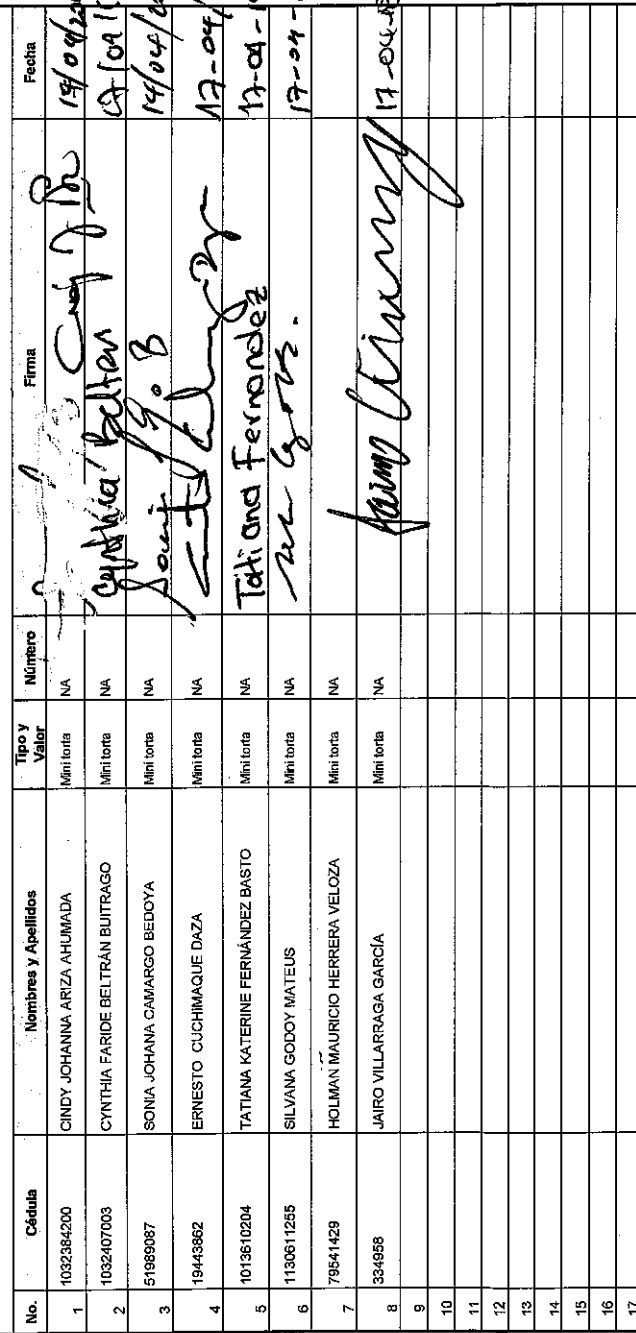 No. Cédula Nombres y Apellidos Tipo y Valor Número Firma Fecha
1 1032384200 CINDY JOHANNA ARIZA AHUMADA Mini torta NA Cindy 14/04/20
2 1032407003 CYNTHIA FARIDE BELTRÁN BUITRAGO Mini torta NA Cynthia Beltran
3 51989087 SONIA JOHANA CAMARGO BEDOYA Mini torta NA 14/04/20
4 19443862 ERNESTO CUCHIMAQUE DAZA Mini torta NA 17-04/
5 1013610204 TATIANA KATERINE FERNÁNDEZ BASTO Mini torta NA Tatiana Fernandez 17-04-
6 1130611255 SILVANA GODOY MATEUS Mini torta NA 17-04-
7 79541429 HOLMAN MAURICIO HERRERA VELOZA Mini torta NA
8 334958 JAIRO VILLARRAGA GARCÍA Mini torta NA 17-04-
9
10
11
12
13
14
15
16
17